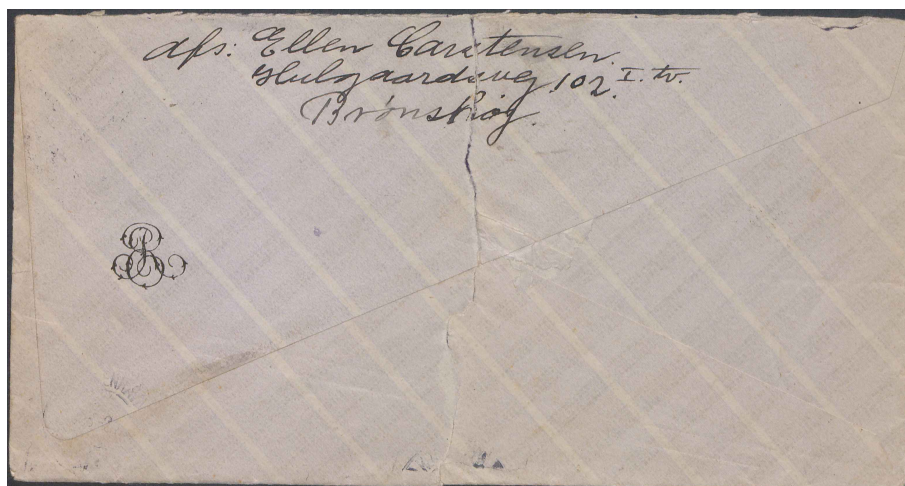 afs: Ellen Carstensen.
Hulgaardsvej 102. I. tv.
Brønshøj.